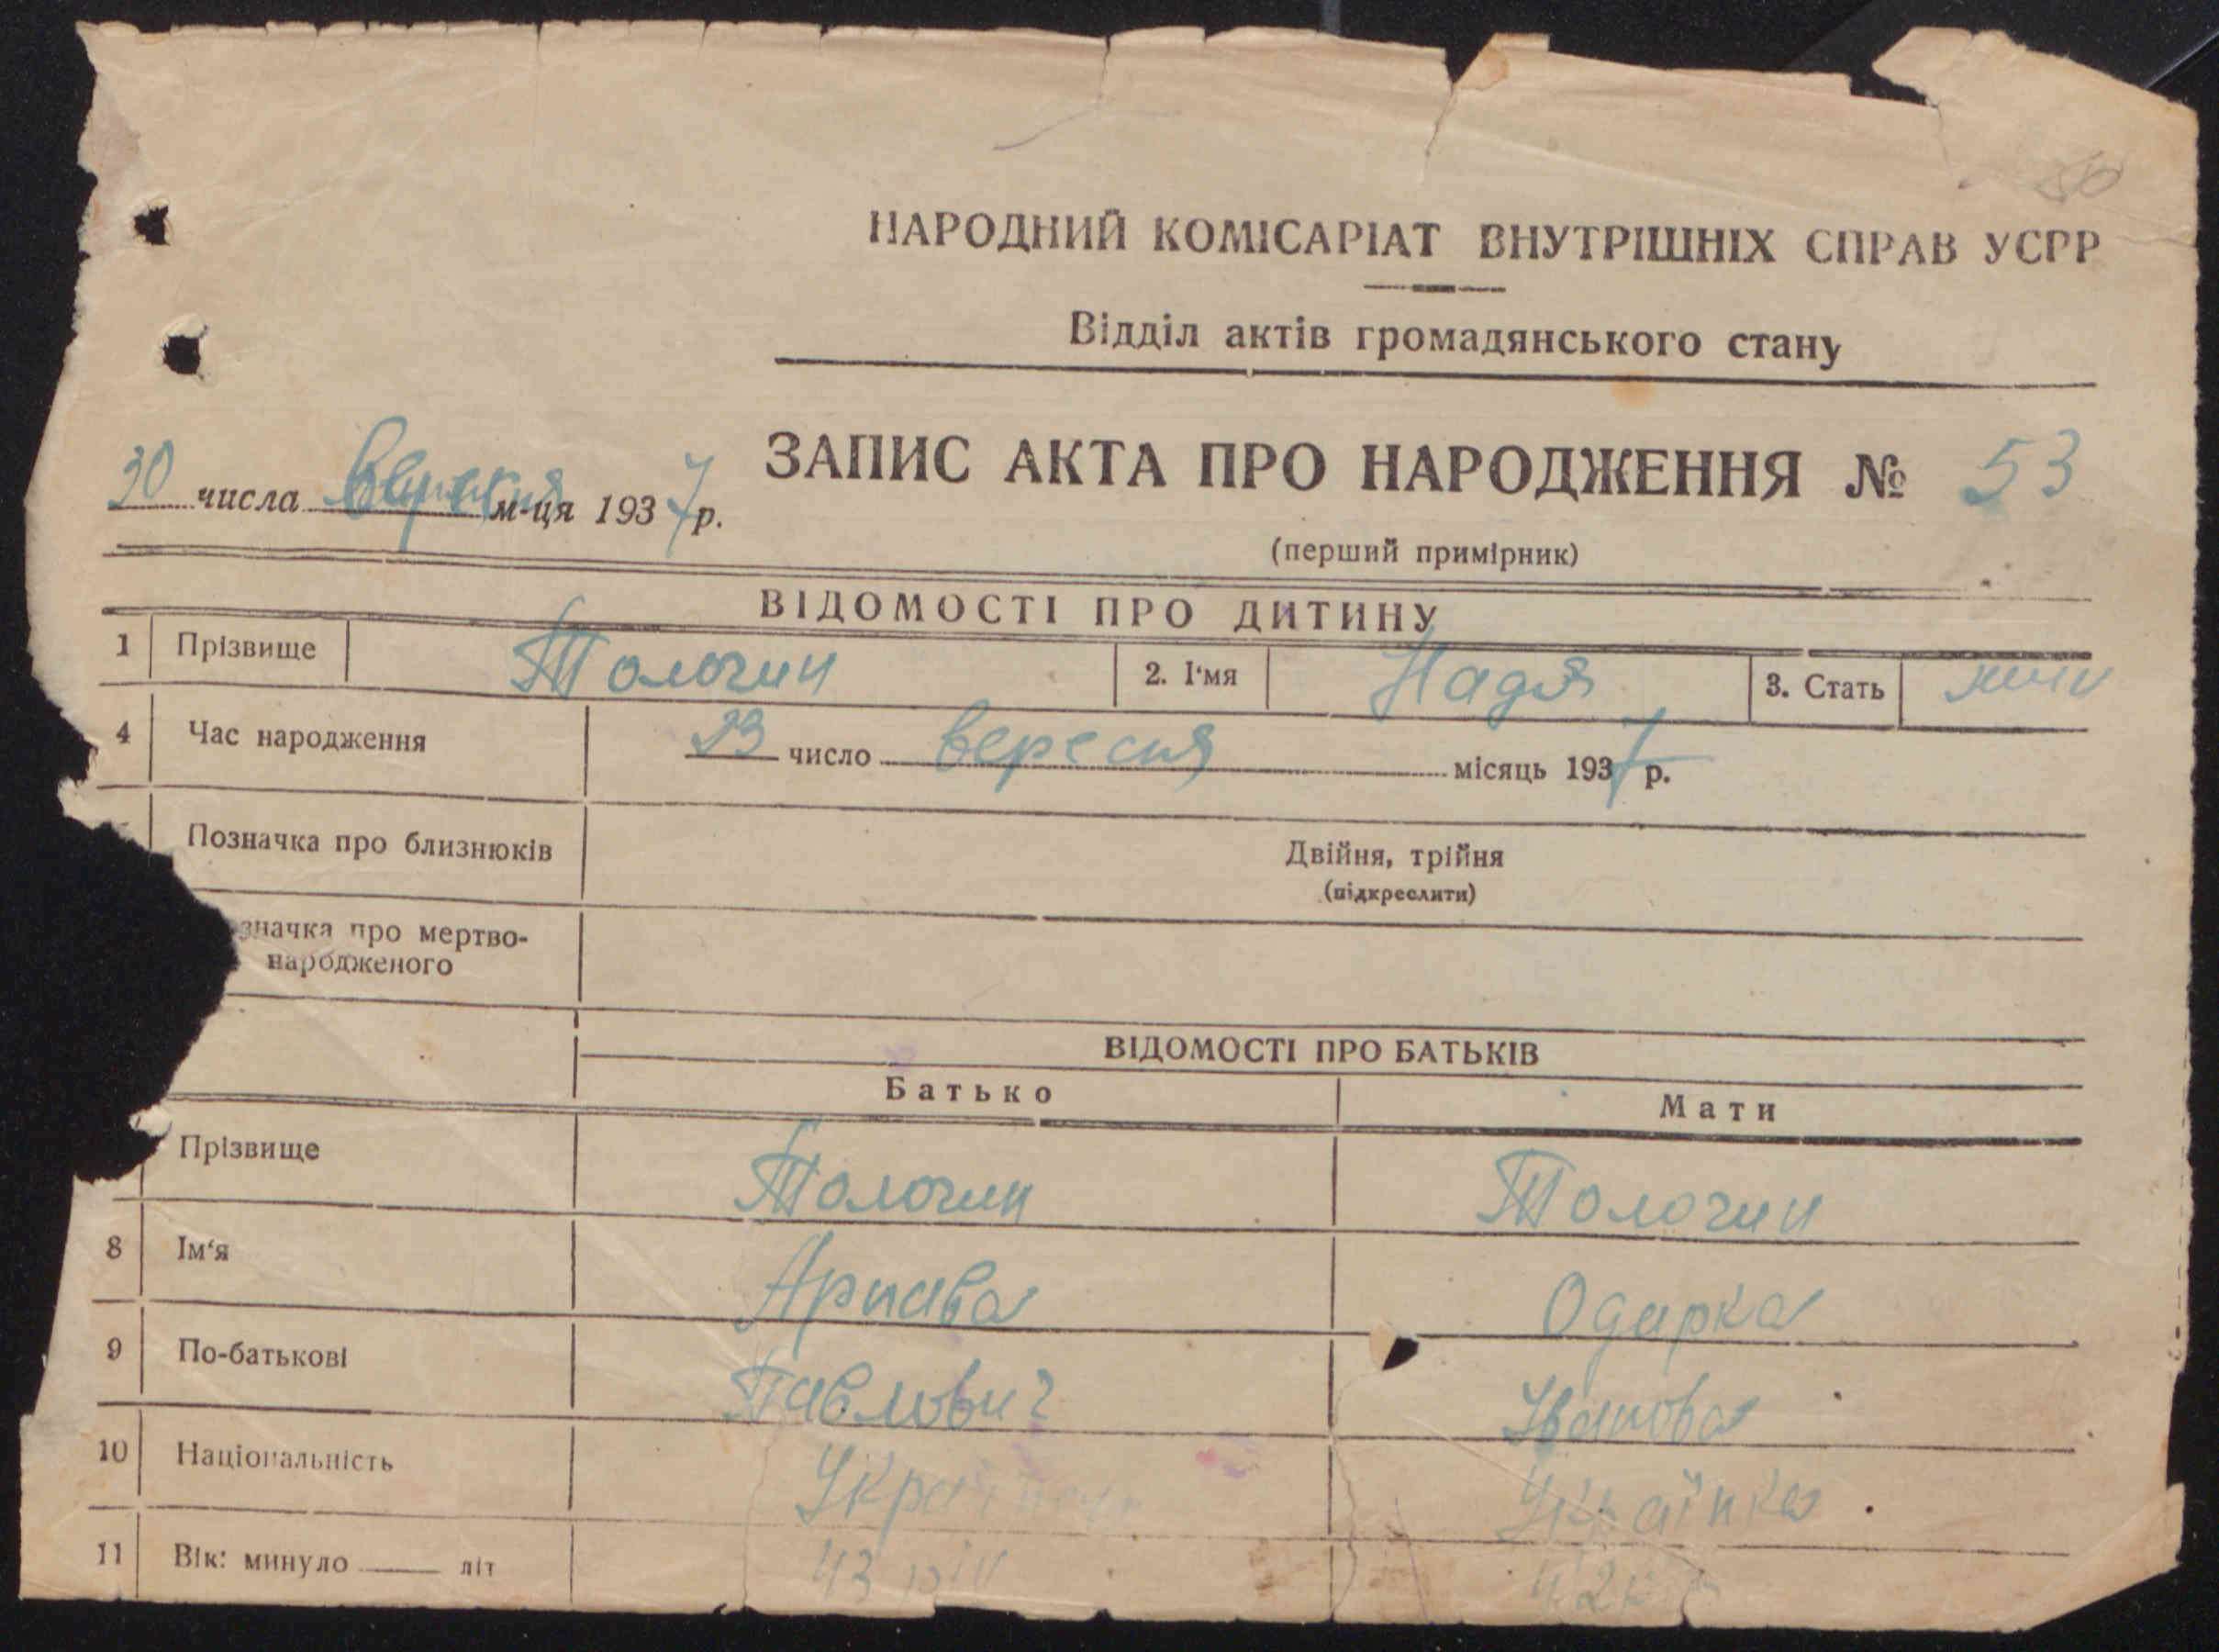 50
НАРОДНИЙ КОМІСАРІАТ ВНУТРІШНІХ СПРАВ УСРР
Відділ актів громадянського стану
30 числа вересня м-ця 1937 р.
ЗАПИС АКТА ПРО НАРОДЖЕННЯ № 53
(перший примірник)
ВІДОМОСТІ ПРО ДИТИНУ
1 Прізвище Толочин 2. І'мя Надя 3. Стать
4 Час народження 23 число вересня місяць 1937 р.
Позначка про близнюків Двійня, трійня
(підкреслити)
значка про мертво-
народженого
ВІДОМОСТІ ПРО БАТЬКІВ
Батько Мати
Прізвище Толочин Толочин
8 Ім'я Одарка
9 По-батькові Павлович Іванова
10 Національність Українка
11 Вік: минуло літ 43 42